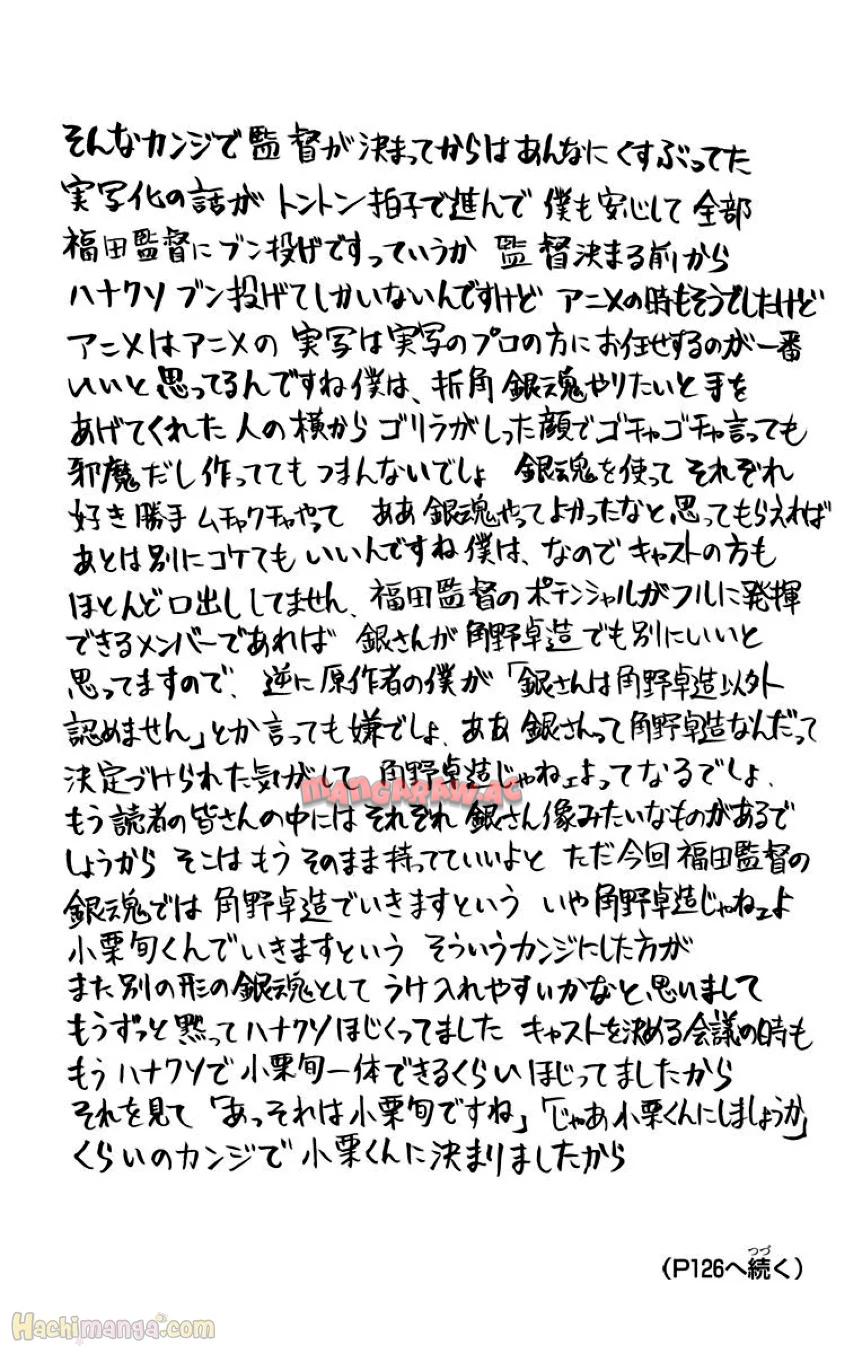 そんなカンジで監督が決まってからはあんなにくすぶってた
実写化の話がトントン拍子で進んで 僕も安心して 全部
福田監督にブン投げですっていうか 監督決まる前から
ハナクソ ブン投げてしかいないんですけど アニメの時もそうでしたけど
アニメはアニメの 実写は実写のプロの方にお任せするのが一番
いいと思ってるんですね僕は、折角 銀魂やりたいと手を
あげてくれた人の横からゴリラがしった顔でゴチャゴチャ言っても
邪魔だし作っててもつまんないでしょ 銀魂を使って それぞれ
好き勝手ムチャクチャやって ああ銀魂やってよかったなと思ってもらえれば
あとは別にコケてもいいんですね僕は、なので キャストの方も
ほとんど口出ししてません、福田監督のポテンシャルがフルに発揮
できるメンバーであれば 銀さんが角野卓造でも別にいいと
思ってますので、逆に原作者の僕が「銀さんは角野卓造以外
認めません」とか言っても嫌でしょ、ああ銀さんって角野卓造なんだって
決定づけられた気がして 角野卓造じゃねェよってなるでしょ、
MANGARAW.AC
もう読者の皆さんの中にはそれぞれ銀さん像みたいなものがあるで
しょうから そこはもうそのまま持ってていいよと ただ今回福田監督の
銀魂では角野卓造でいきますという いや角野卓造じゃねェよ
小栗旬くんでいきますという そういうカンジにした方が
また別の形の銀魂として うけ入れやすいかなと、思いまして
もうずっと黙ってハナクソほじくってました キャストを決める会議の時も
もうハナクソで小栗旬一体できるくらいほじってましたから
それを見て「あっそれは小栗旬ですね」「じゃあ小栗くんにしましょうか」
くらいのカンジで 小栗くんに決まりましたから
(P126へ続く)
つづ
Hachimanga.com